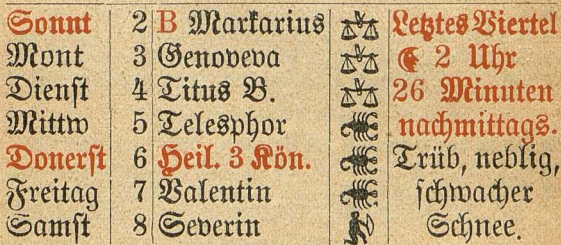 Sonnt 2 B Markarius Letztes Viertel
Mont 3 Genoveva 2 Uhr
Dienst 4 Titus B. 26 Minuten
Mittw 5 Telesphor nachmittags.
Donerst 6 Heil. 3 Kön. Trüb, neblig,
Freitag 7 Valentin schwacher
Samst 8 Severin Schnee.